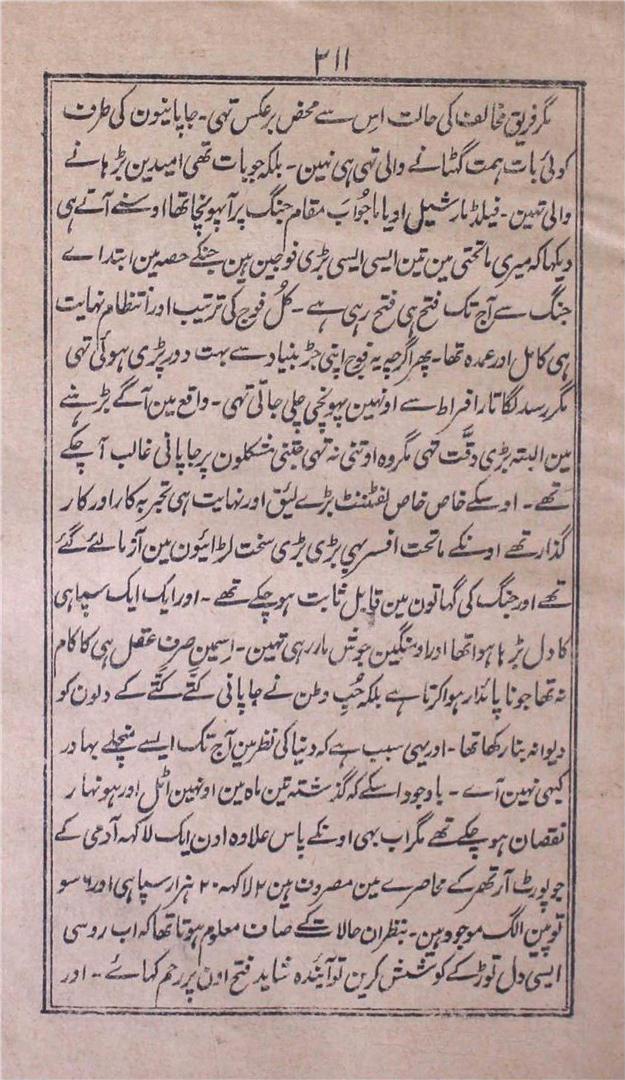 ۳۱۱
مگر فریق مخالف کی حالت اس سے محض برعکس تہی۔ جاپانیون کی طرف
کوئی بات ہمت گھٹانے والی تہی ہی نہین۔ بلکہ جو بات تھی امیدین بڑہانے
والی تہین۔ فیلڈ مارشیل اویاما جواَب مقام جنگ پر آپہونچا تھا اوسنے آتے ہی
دیکہا کہ میری ماتحتی مین تین ایسی ایسی بڑی فوجین ہین جنکے حصہ مین ابتداے
جنگ سے آج تک فتح ہی فتح رہی ہے۔ کلُ فوج کی ترتیب اور انتظام نہایت
ہی کامل اور عمدہ تھا۔ پھر اگرچہ یہ فوج اپنی جڑ بنیاد سے بہت دور پڑی ہوئی تہی
مگر رسد لگاتار افراط سے اونہین پہونچی چلی جاتی تہی۔ واقع مین آگے بڑہنے
مین البتہ بڑی دقّت تہی مگر وہ اوتنی نہ تہی جتنی مشکلون پر جاپانی غالب آچکے
تھے۔ اوسکے خاص خاص لفٹننٹ بڑے لیئق اور نہایت ہی تجربہ کار اور کار
گذار تھے اونکے ماتحت افسر بہی بڑی بڑی سخت لڑائیون مین آزمائے گئے
تھے اور جنگ کی گہاتون مین قابل ثابت ہوچکے تھے۔ اور ایک ایک سپاہی
کا دل بڑہا ہوا تھا اور اومنگین جوش مار رہی تہین۔ اسمین صرف عقل ہی کا کام
نہ تھا جو ناپائدار ہوا کرتا ہے بلکہ حُبِ وطن نے جاپانی کتّے کتّے کے دلون کو
دیوانہ بنا رکھا تھا۔ اور یہی سبب ہے کہ دنیا کی نظر مین آج تک ایسے منچلے بہادر
کبہی نہین آے۔ باوجود اسکے کہ گذشتہ تین ماہ مین اونہین اٹل اور ہونہار
نقصان ہوچکے تھے مگر اب بھی اونکے پاس علاوہ اون ایک لاکہہ آدمی کے
جو پورٹ آرتھر کے محاصرے مین مصروف ہین ۲ لاکہہ ۲۰ ہزار سپاہی اور ۶ سو
توپین الگ موجود ہین۔ بنظر ان حالات کے صاف معلوم ہوتا تھا کہ اب روسی
ایسی دل توڑ کے کوشش کرین تو آیندہ شاید فتح اون پر رحم کہائے۔ اور